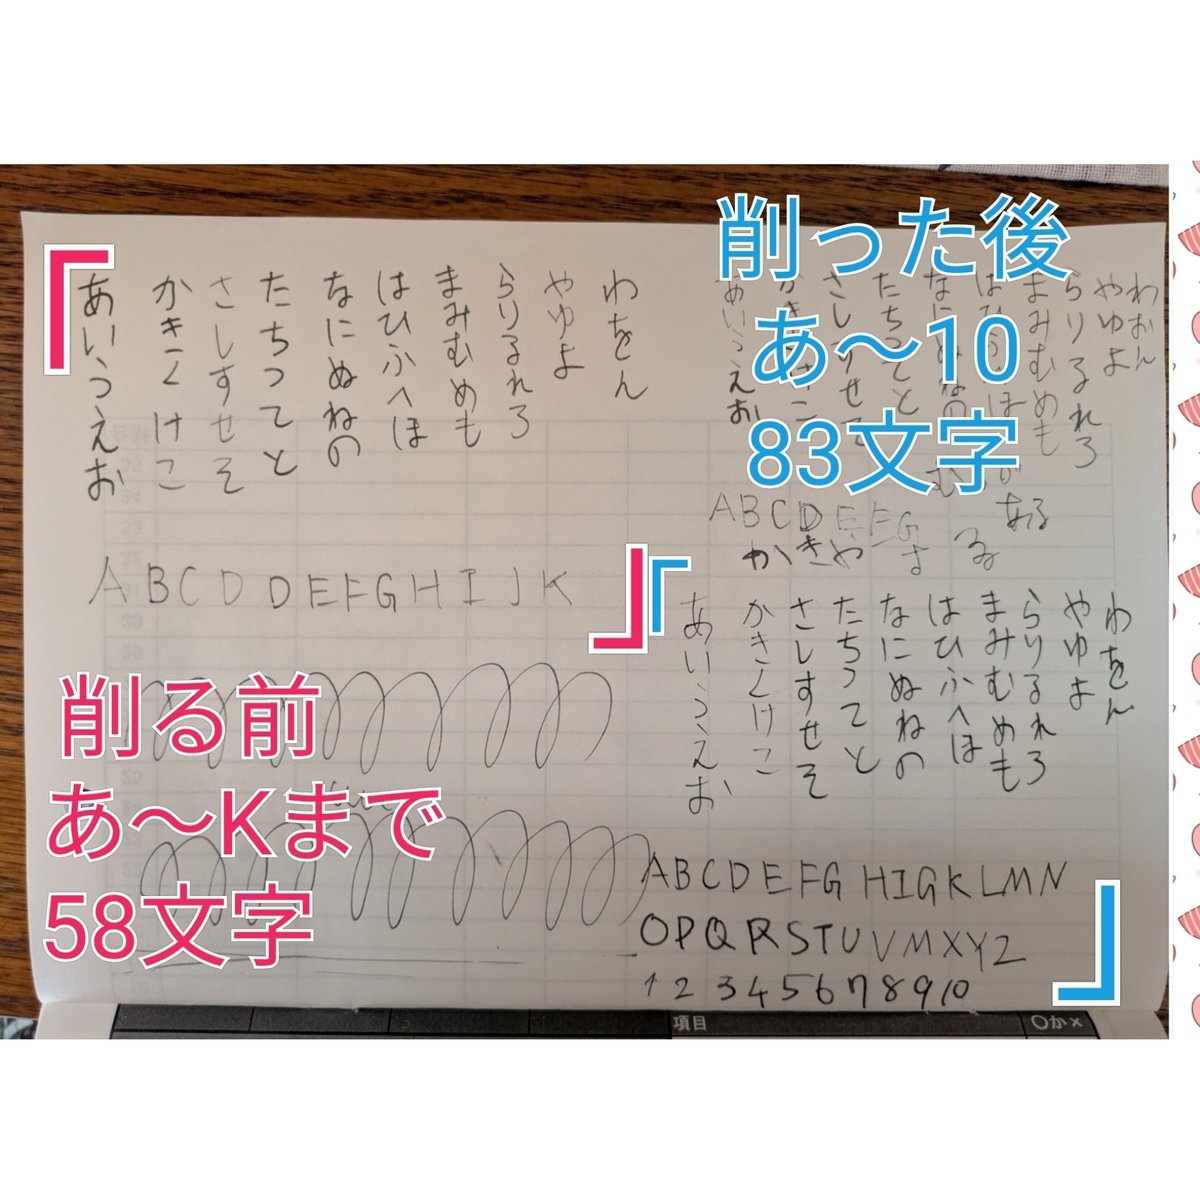 あいうえお
かきくけこ
さしすせそ
たちつてと
なにぬねの
はひふへほ
まみむめも
らりるれろ
やゆよ
わをん
A B C D D E F G H I J K
削る前
あ～Kまで
58文字
削った後
あ～10
83文字
たちつてと
まみむめも
らりるれろ
やゆよ
わおん
む
が
ある
A B C D E F G
かきや よ る
あいうえお
かきくけこ
さしすせそ
たちつてと
なにぬねの
はひふへほ
まみむめも
らりるれろ
やゆよ
わをん
ABCDEFG HIGKLMN
OPQRSTUVMXYZ
1 2 3 4 5 6 7 8 9 10
項目
〇か×